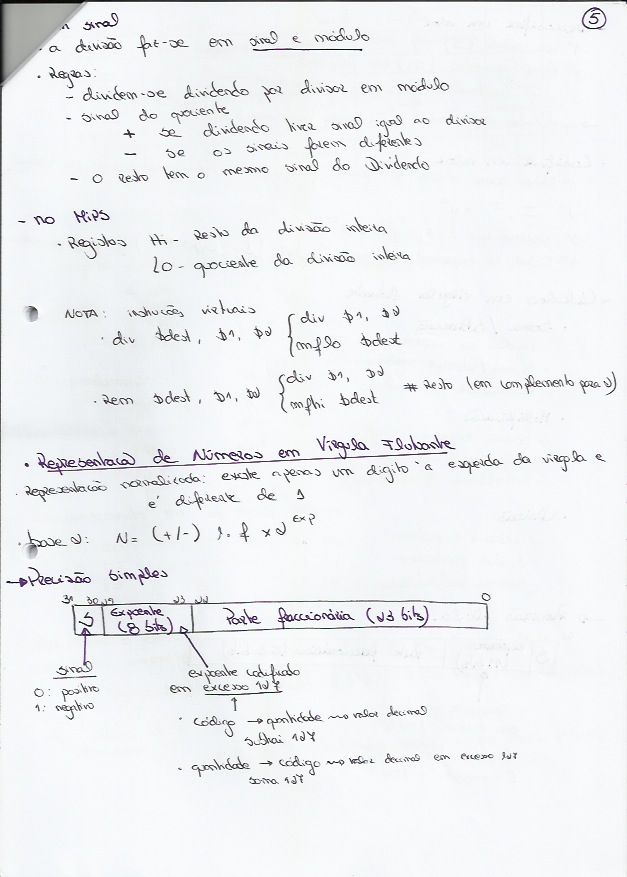 sinal
5
. a divisão faz-se em sinal e módulo
. Regras:
- dividem-se dividendo por divisor em módulo
- sinal do quociente
+ se dividendo tiver sinal igual ao divisor
- se os sinais forem diferentes
- o resto tem o mesmo sinal do Dividendo
- no MIPS
. Registos Hi - Resto da divisão inteira
LO - quociente da divisão inteira
NOTA: instruções virtuais
. div $dest, $1, $2 { div $1, $2
mflo $dest
. Rem $dest, $1, $2 { div $1, $2
mfhi $dest # Resto (em complemento para 2)
. Representação de Números em Vírgula Flutuante
. Representação normalizada: existe apenas um digito à esquerda da virgula e
é diferente de 1
. base 2: N = (+/-) 1. f x 2^Exp
→ Precisão Simples
31 30 29 23 22 0
S Expoente (8 bits) Parte fraccionária (23 bits)
sinal
0: positivo
1: negativo
expoente codificado
em excesso 127
. código → quantidade no valor decimal
subtrai 127
. quantidade → código no valor decimal em excesso 127
soma 127